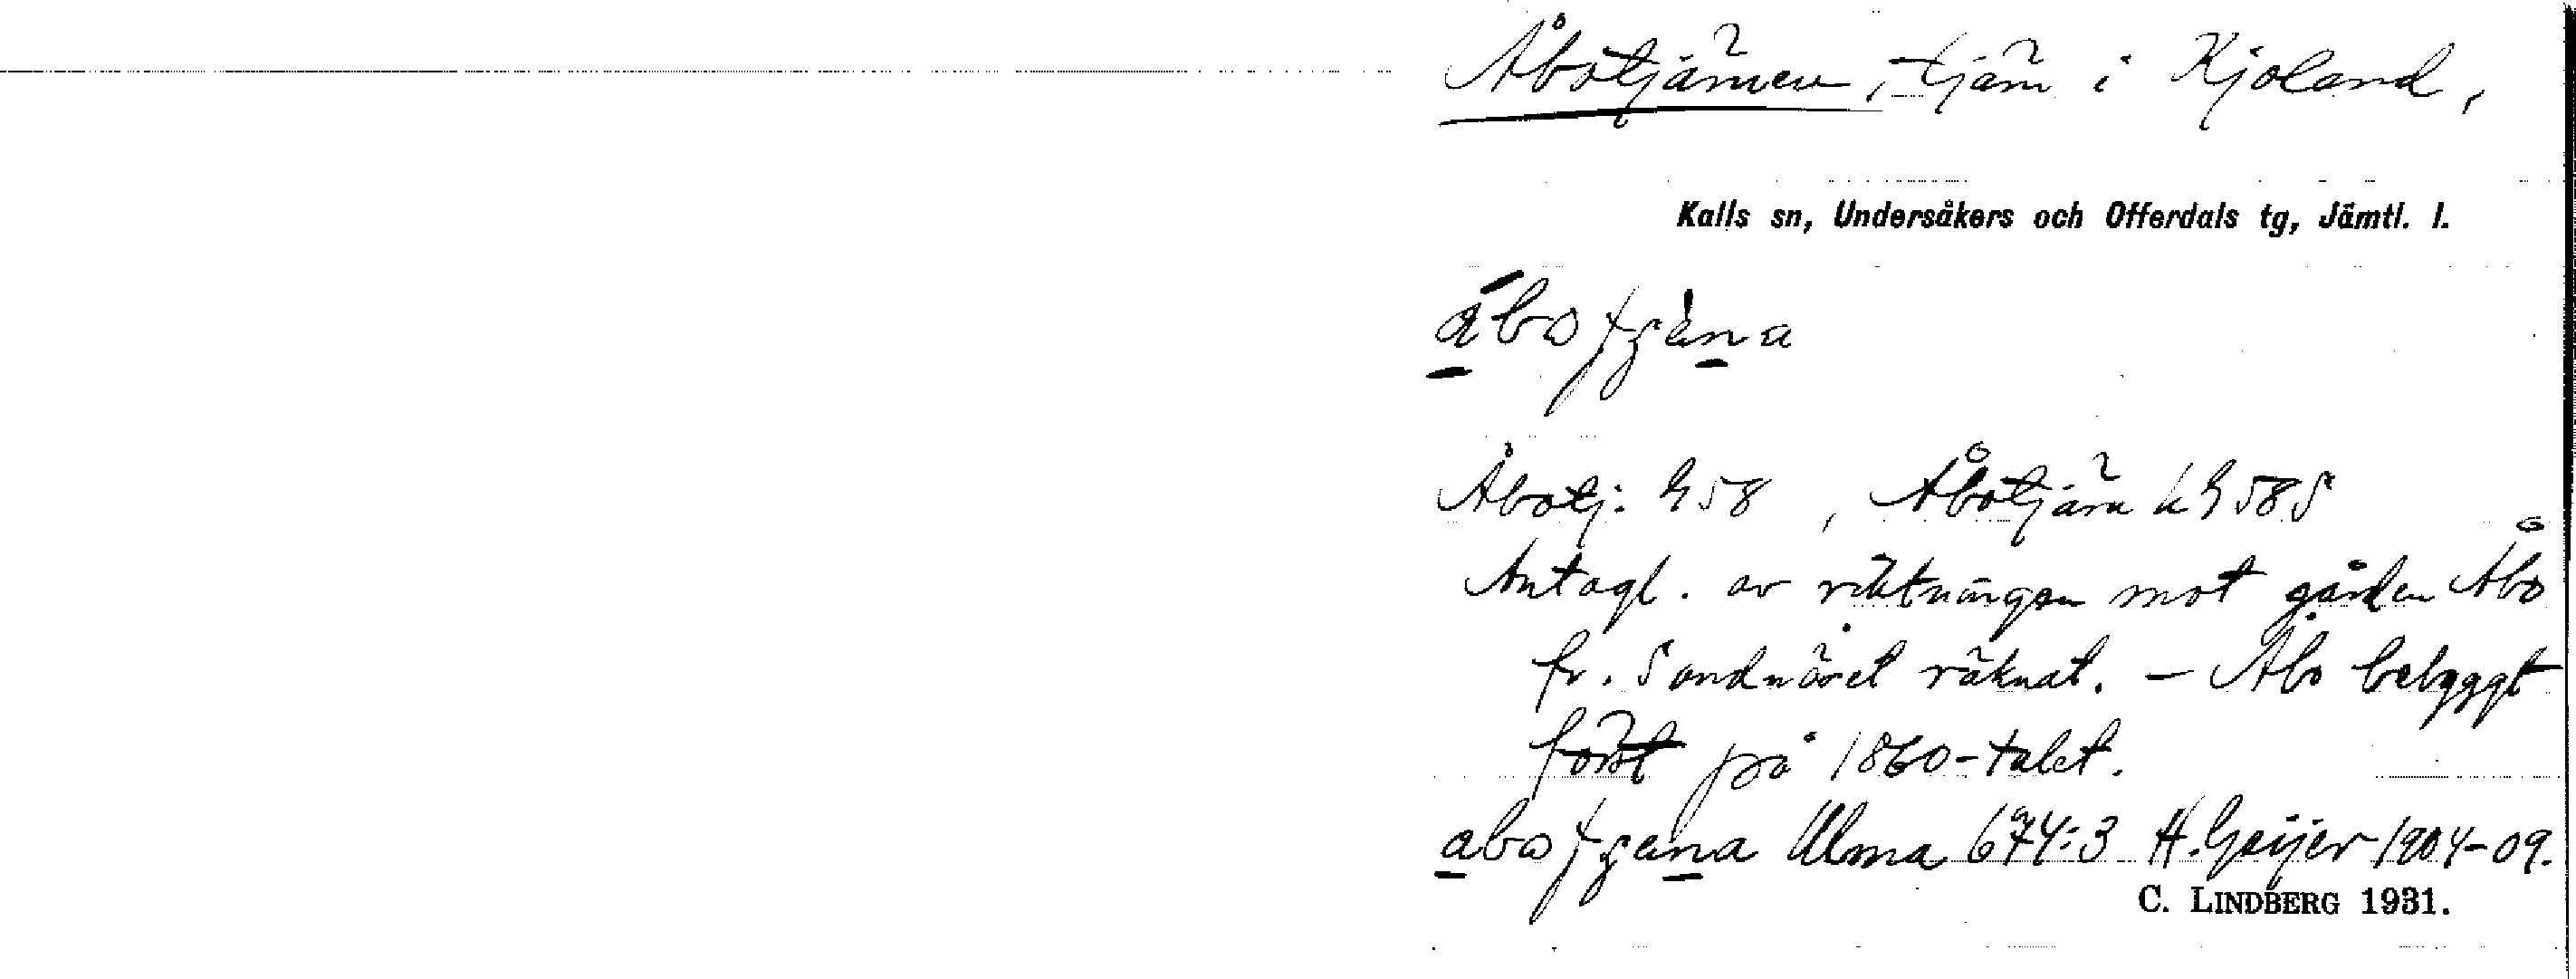 Åbotjärnen, tjärn i Kjoland,
Kalls sn, Undersåkers och Offerdals tg, Jämtl. l.
Åbotj. G58, Åbotjärn kG58S
Antagl. av riktningen mot gården Åbo
fr. Sandnäset räknat. – Åbo bebyggt
först på 1860-talet.
Ulma 674:3 H. Geijer 1904-09.
C. LINDBERG 1931.